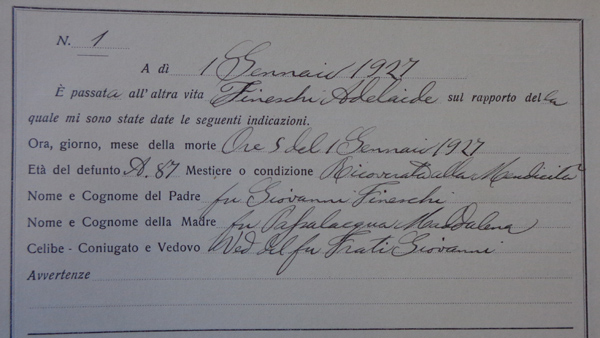 N. 1
A dì 1 Gennaio 1927
È passata all'altra vita Fineschi Adelaide sul rapporto della
quale mi sono state date le seguenti indicazioni.
Ora, giorno, mese della morte Ore 5 del 1 Gennaio 1927
Età del defunto A. 87 Mestiere o condizione Ricoverata alla Mendicità
Nome e Cognome del Padre fu Giovanni Fineschi
Nome e Cognome della Madre fu Passalacqua Maddalena
Celibe - Coniugato e Vedovo Ved del fu Frati Giovanni
Avvertenze